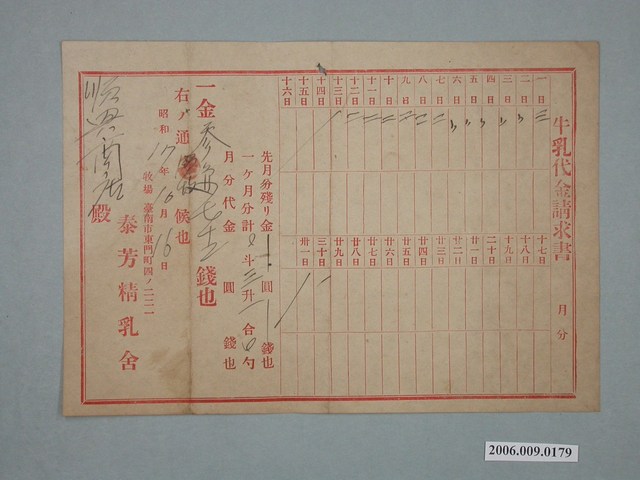 牛乳代金請求書 月分
一日 二日 三日 四日 五日 六日 七日 八日 九日 十日 十一日 十二日 十三日 十四日 十五日 十六日
十七日 十八日 十九日 二十日 廿一日 廿二日 廿三日 廿四日 廿五日 廿六日 廿七日 廿八日 廿九日 三十日 卅一日
先月分殘リ金 圓 錢也
一ケ月分計 斗 三升 合 勺
月分代金 圓 錢也
一金 錢也
右ノ通 候也
昭和 17年 10月 16日
牧場 臺南市東門町四ノ二二一
泰芳精乳舍
順興商店 殿
2006.009.0179